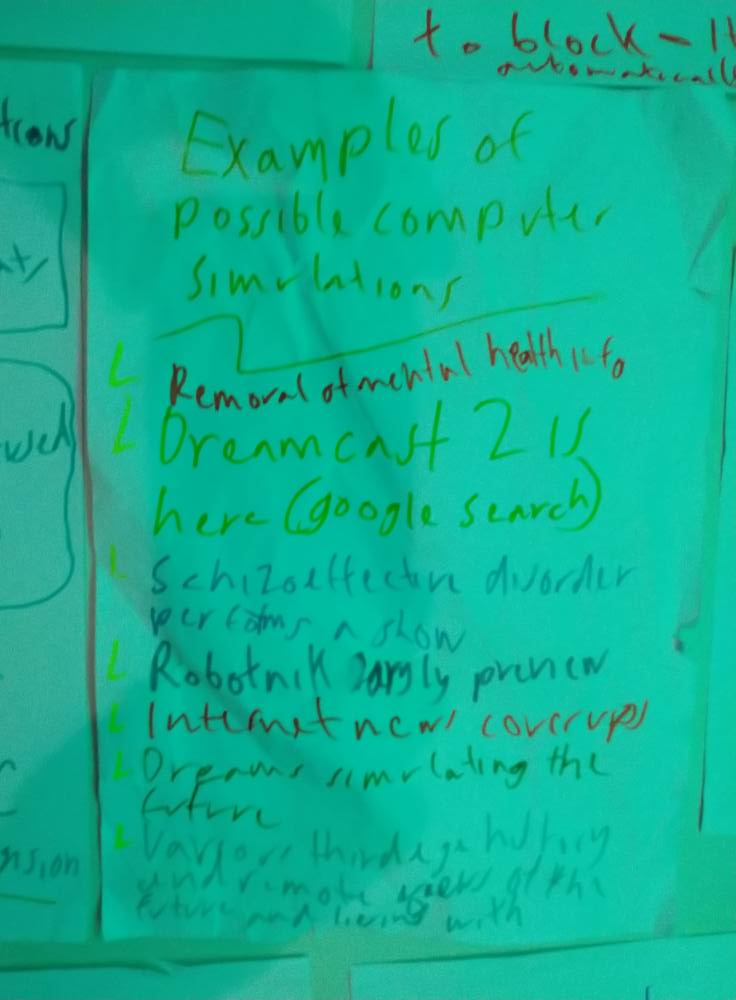 t. block - It
automatically
trons
Examples of
possible computer
simulations
Removal of mental health info
Dreamcast 2 is
here (google search)
Schizoeffective disorder
performs a show
Robotnik
Internet news coverups
Dreams simulating the
future
Various third age history
and remote of the
future and living with
nsion